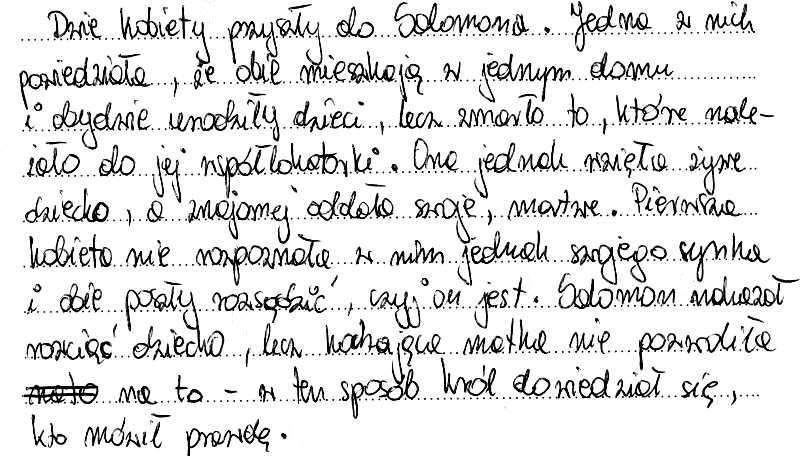 Dwie kobiety przyszły do Salomona. Jedna z nich
powiedziała, że obie mieszkają w jednym domu
i obydwie urodziły dzieci, lecz zmarło to, które nale-
żało do jej współlokatorki. Ona jednak wzięła żywe
dziecko, a znajomej oddała swoje, martwe. Pierwsza
kobieta nie rozpoznała w nim jednak swojego synka
i obie poszły rozsądzić, czyj on jest. Salomon nakazał
rozciąć dziecko, lecz kochająca matka nie pozwoliła
na to – w ten sposób król dowiedział się,
kto mówił prawdę.